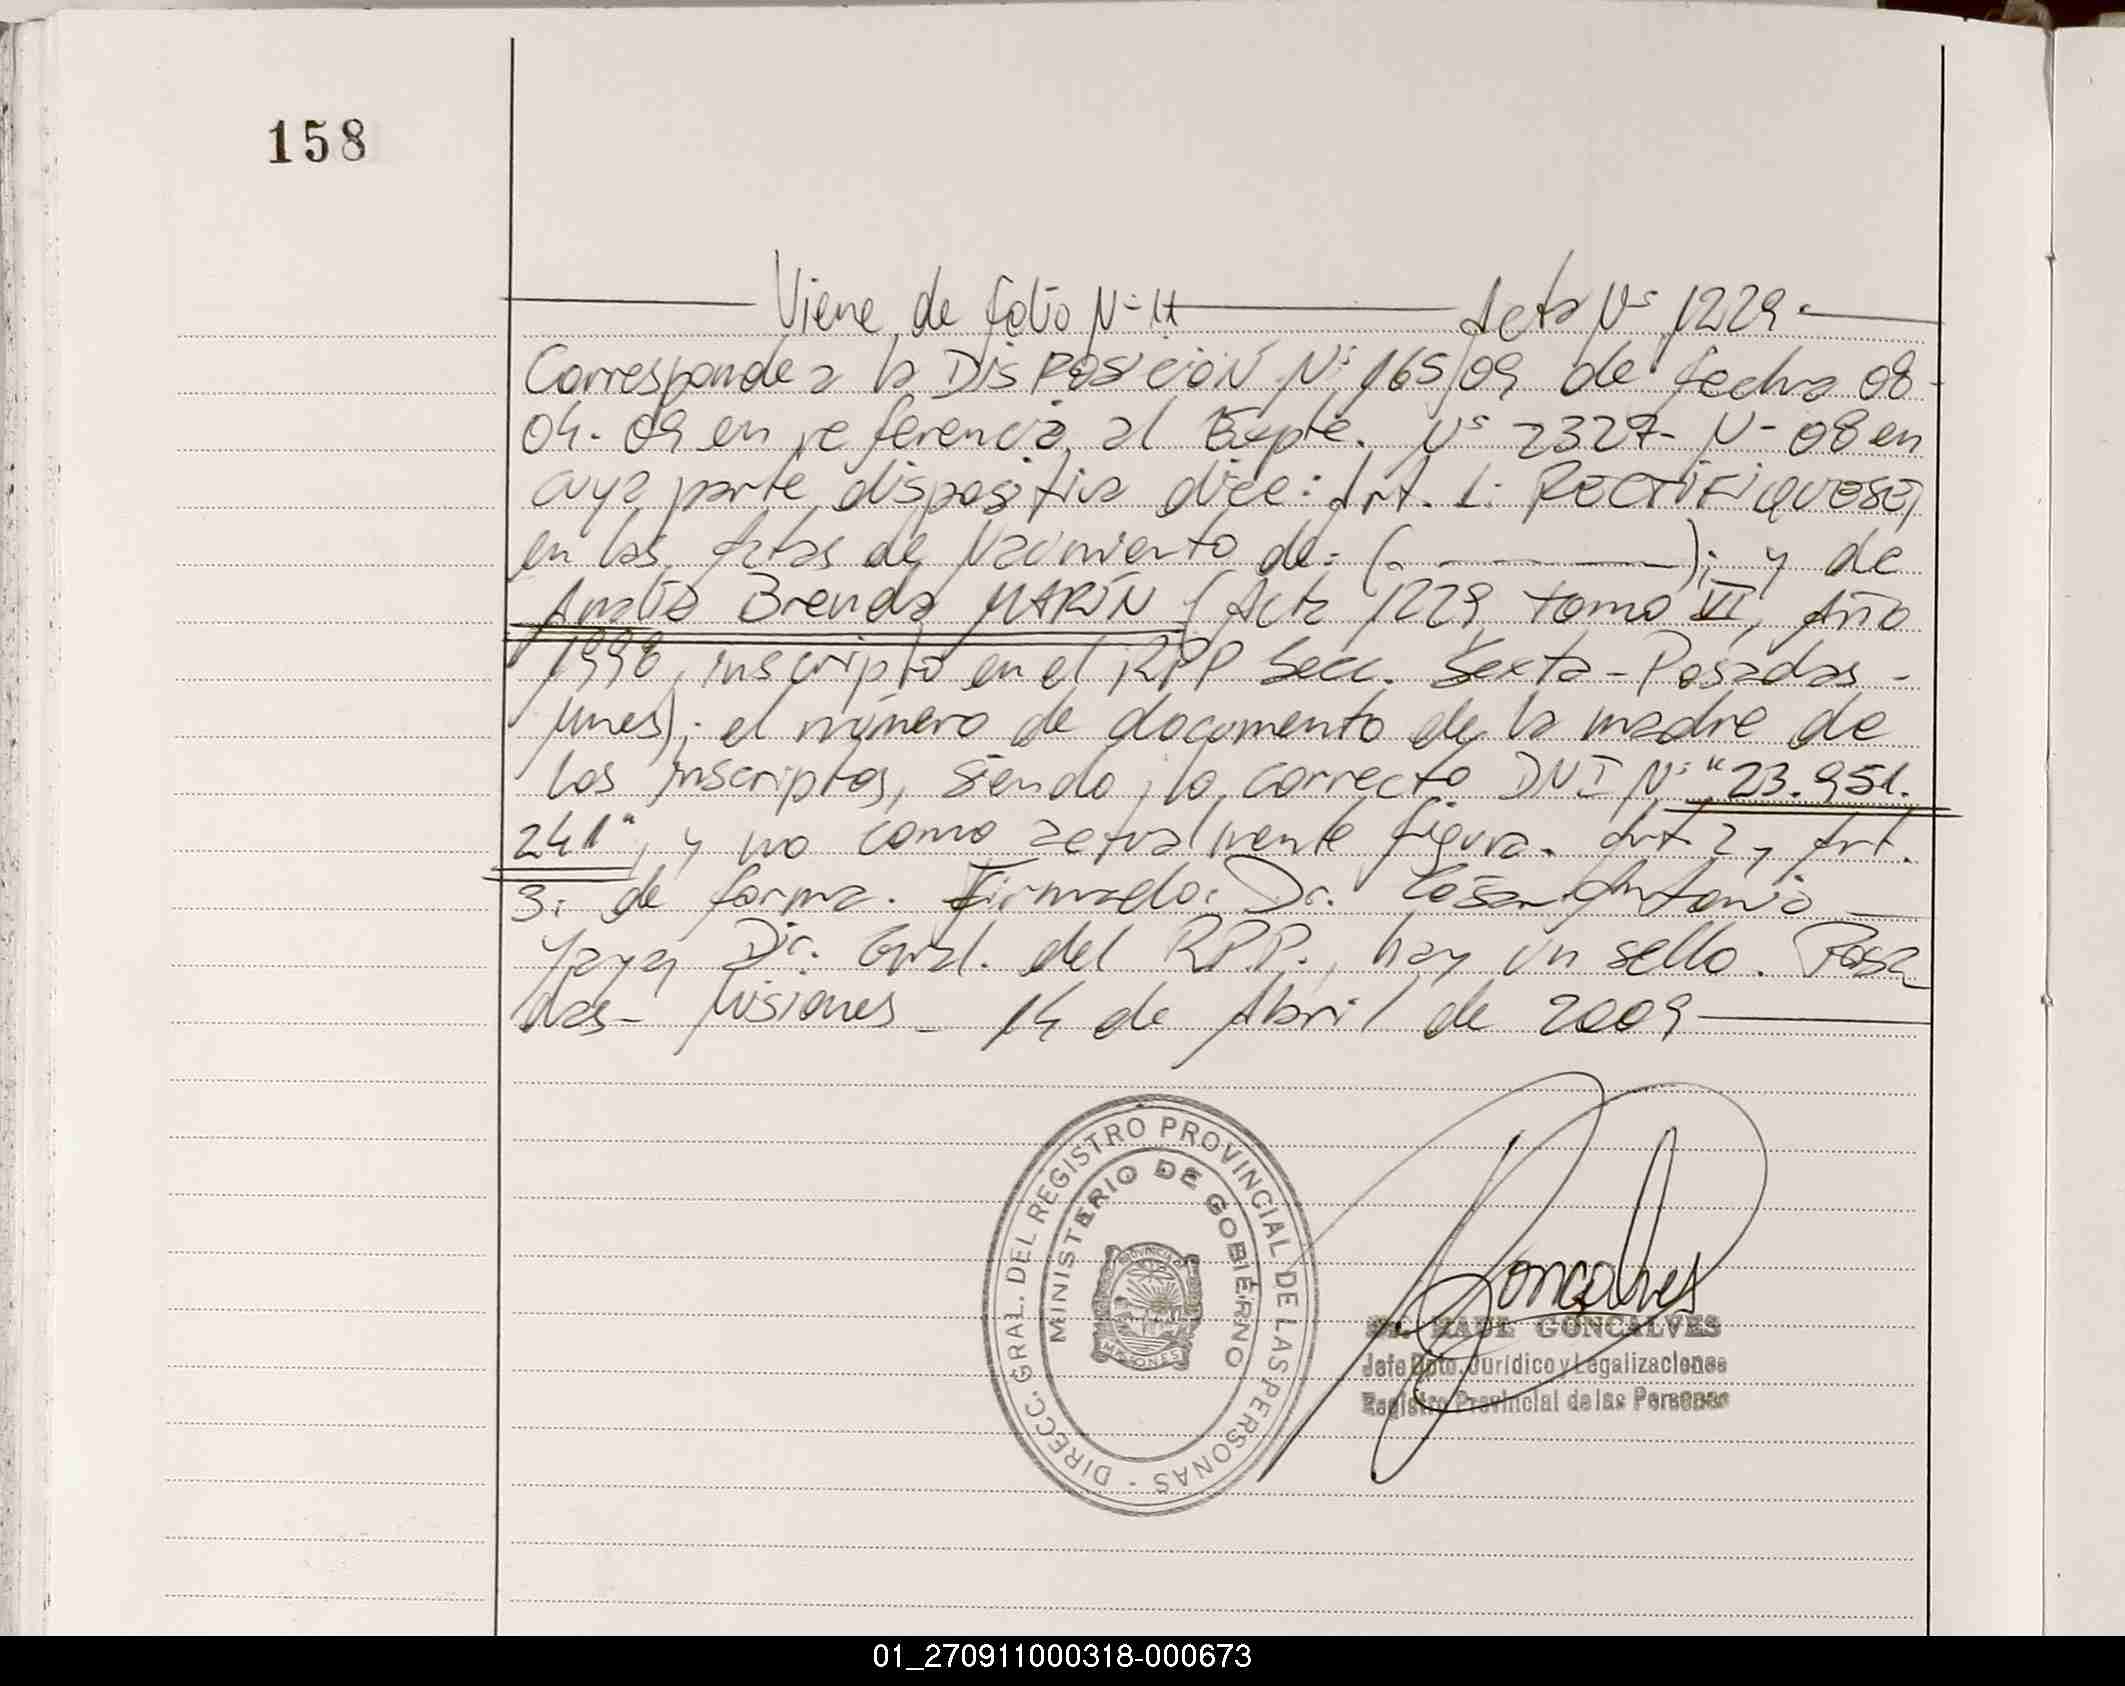 158
Viene de folio Nº 11 Acta Nº 1229.
Corresponde a la DISPOSICIÓN Nº 165/09 de fecha 08-
04-09 en referencia al Expte. Nº 2327-N-08 en
cuya parte dispositiva dice: Art. 1: RECTIFIQUESE,
en las Actas de Nacimiento de: ( ); y de
Amalia Brenda MARÍN (Acta 1229, tomo VI, Año
1998, inscripta en el RPP Secc. Sexta - Posadas -
Mnes); el número de documento de la madre de
los inscriptos, siendo lo correcto DNI Nº "23.951.
241", y no como actualmente figura. Art. 2, Art.
3: de forma. Firmado: Dr. César Antonio
Yaya, Dir. Gral. del R.P.P., hay un sello. Posa
das - Misiones - 14 de Abril de 2009
DIRECC. GRAL. DEL REGISTRO PROVINCIAL DE LAS PERSONAS -
MINISTERIO DE GOBIERNO
PROVINCIA
MISIONES
Goncalves
Sr. RAUL GONCALVES
Jefe Dpto. Jurídico y Legalizaciones
Registro Provincial de las Personas
01_270911000318-000673